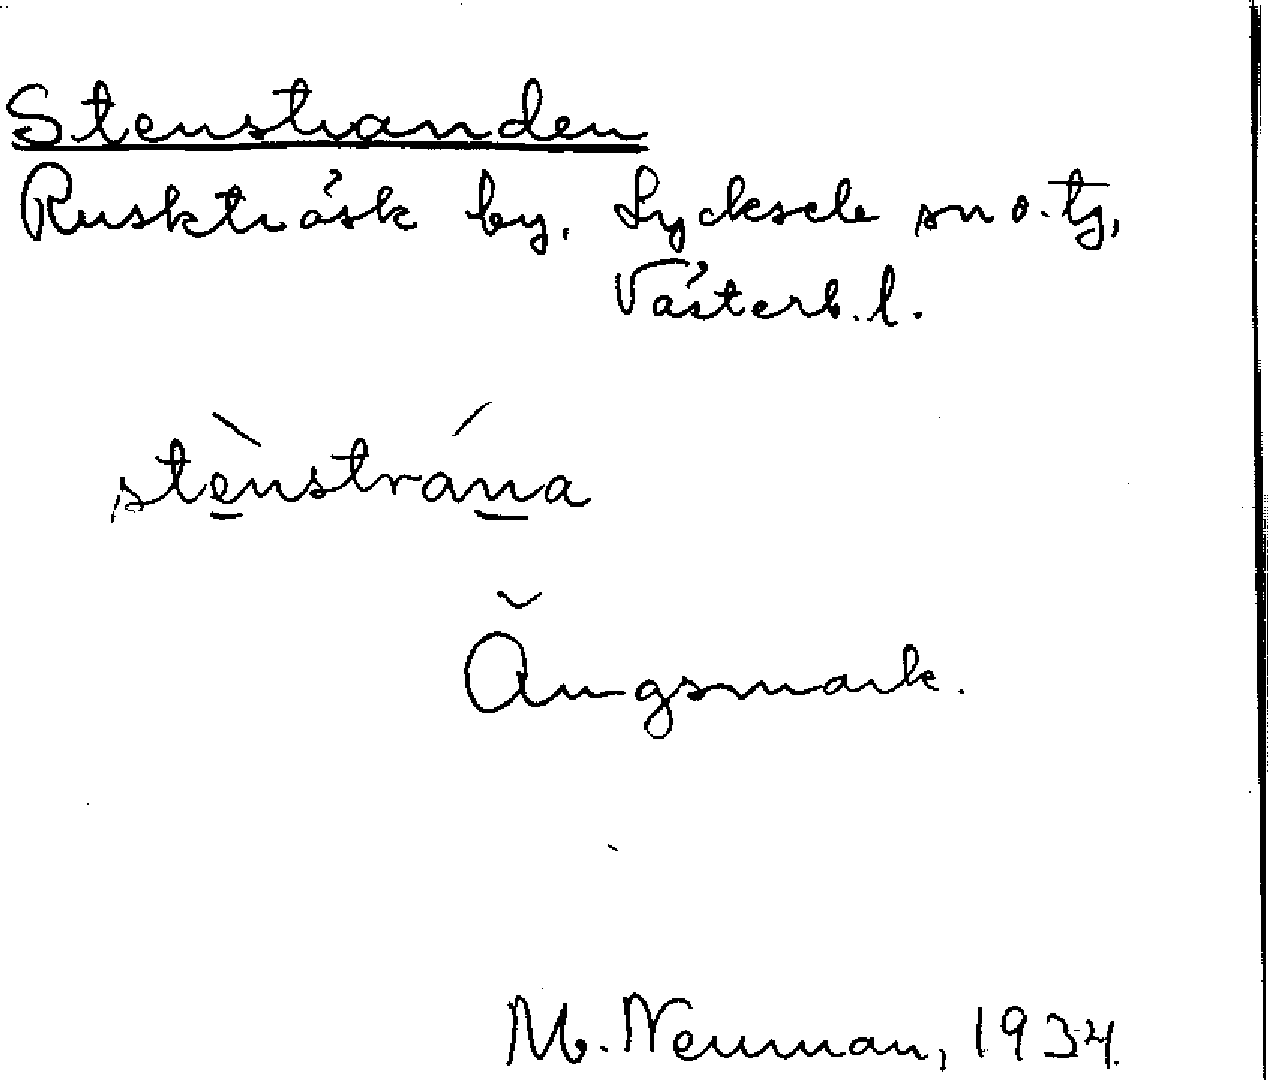 Stenstranden
Ruskträsk by, Lycksele sn o. tg,
Västerb. l.
stènstrána
Ängsmark.
M. Neuman, 1934.